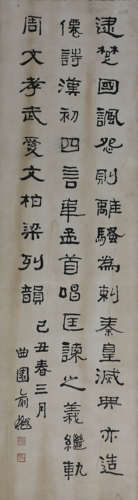 逮楚國諷怨則離騷為刺秦皇滅典亦造
僊詩漢初四言韋孟首唱匡諫之義繼軌
周文孝武愛文柏梁列韻
己丑春三月
曲園俞樾